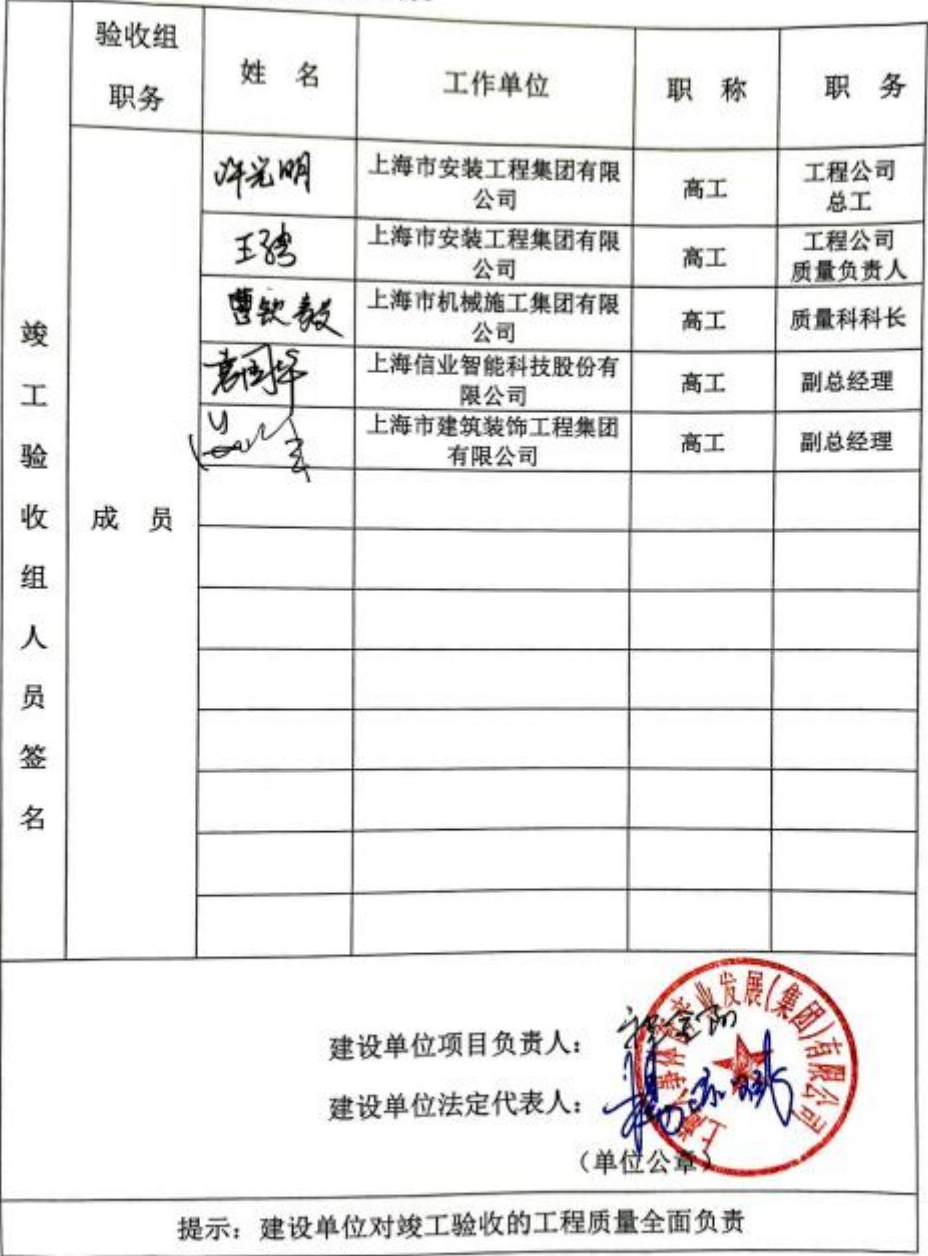 验收组
职务
姓 名
工作单位
职 称
职 务
竣工验收组人员签名
成 员
许光明
上海市安装工程集团有限
公司
高工
工程公司
总工
上海市安装工程集团有限
公司
高工
工程公司
质量负责人
曹钦毅
上海市机械施工集团有限
公司
高工
质量科科长
袁国华
上海信业智能科技股份有
限公司
高工
副总经理
上海市建筑装饰工程集团
有限公司
高工
副总经理
建设单位项目负责人：
建设单位法定代表人：
（单位公章）
业发展(集团)有限公司
提示：建设单位对竣工验收的工程质量全面负责